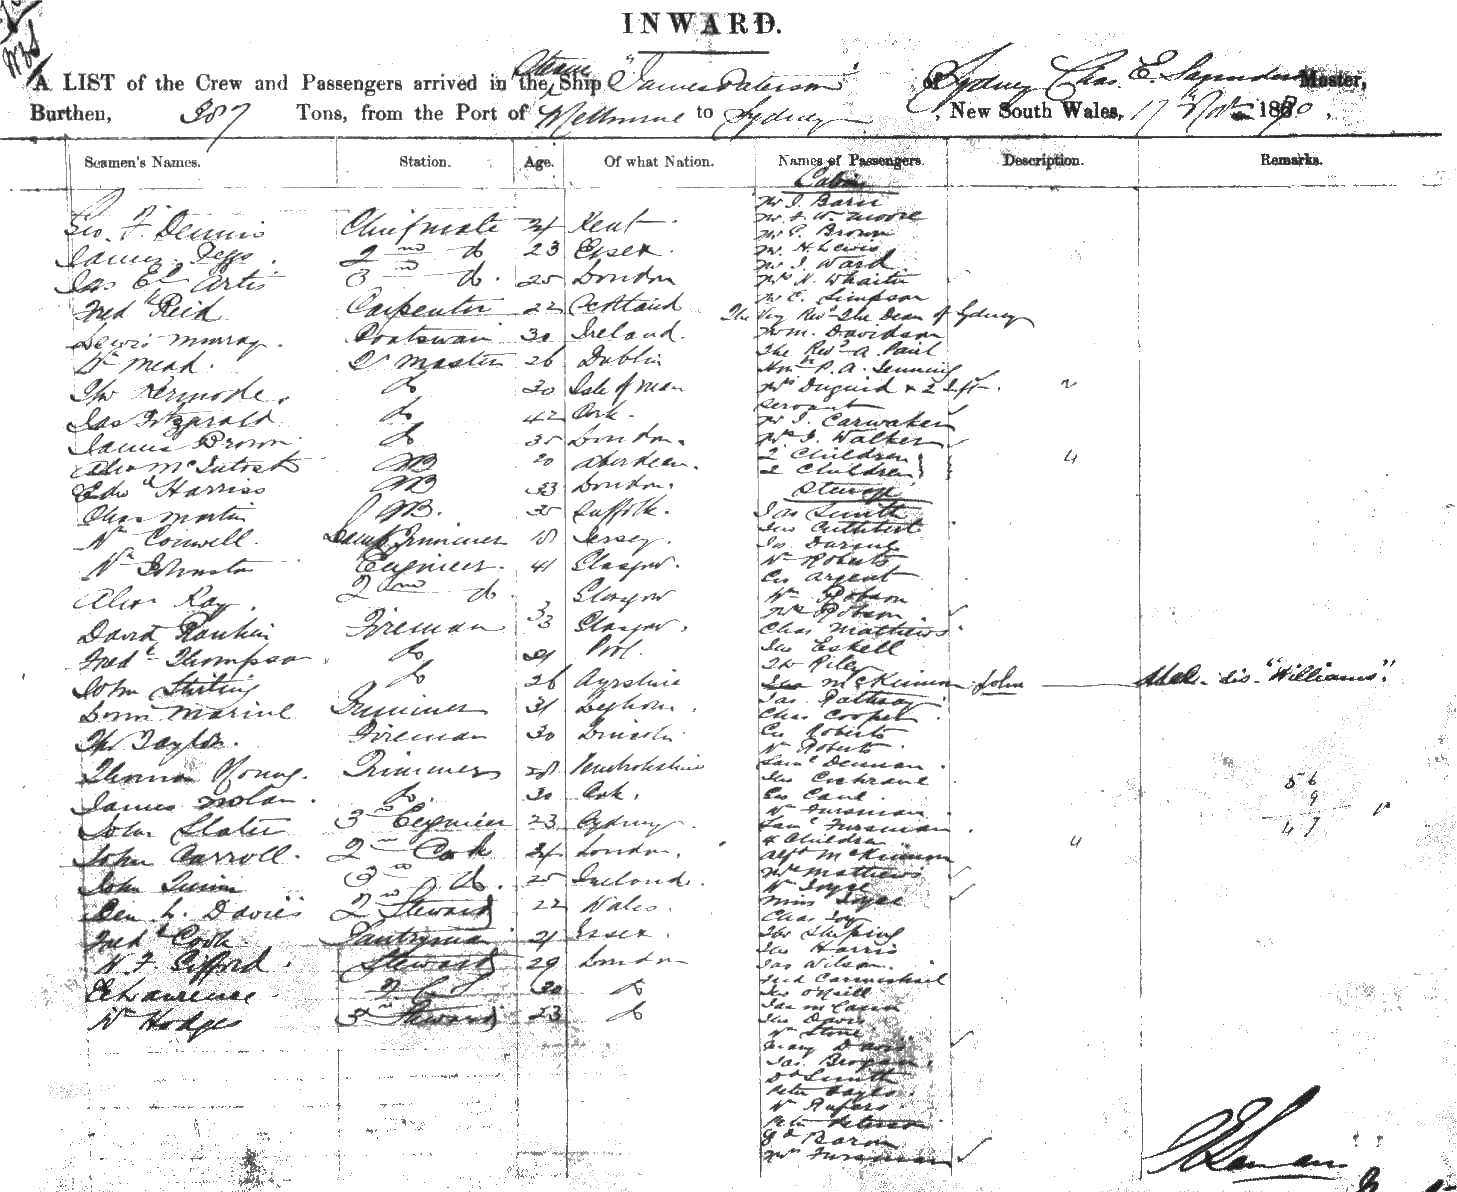 INWARD.
A LIST of the Crew and Passengers arrived in the Steam Ship "James Paterson" of Sydney Chas. E. Saunders Master,
Burthen, 387 Tons, from the Port of Melbourne to Sydney, New South Wales, 17 Novr 1870.
Seamen's Names. Station. Age. Of what Nation. Names of Passengers. Description. Remarks.
Geo. F. Dennis Chief mate 34 Kent.
James 2nd do 23 Essex.
Jas Ed Artis 3rd do. 25 London
Fredk Reid Carpenter 22 Scotland
Lewis Murray. Boatswain 30 Ireland.
Wm Mead. Qr Master 26 Dublin
Thos Kermode. do 30 Isle of Man
Jas Fitzgerald do 42 Cork.
James Brown do 35 London.
Alex McIntosh AB 20 Aberdeen.
Edwd Harriss AB 33 London.
Chas Martin AB. 35 Suffolk.
Wm Cornwell. Lamp Trimmer 18 Jersey.
Wm Johnston Engineer. 41 Glasgow.
Alexr Ray. 2nd do. Glasgow
David Rankin Fireman 33 Glasgow.
Fredk Thompson do
John Stirling do 26 Ayrshire
Marine Trimmer 31 Leghorn.
Thos Taylor. Fireman 30 Lincoln
Thomas Young. Trimmer 28 Pembrokeshire
James Nolan. do. 30 Cork.
John Slater 3rd Engineer 23 Sydney.
John Carroll. 2nd Cook 34 London.
John 3rd do. 25 Ireland.
Ben L. Davies 2nd Steward 22 Wales.
Fredk Cook Pantryman 21 Essex.
W. F. Gifford. Steward 29 London
E Lawrence 30 do
Wm Hodges 3rd Steward 23 do
Cabin
Mr J. Barn
Mr F. W. Moore
Mr P. Brown
Mr H. Lewis
Mr J. Ward
Mr H.
Mr E. Simpson
The Very Revd The Dean of Sydney
Mr M. Davidson
The Revd A. Paul
Honble P. A. Jennings
Mrs Duguid & 2 2
Servant
Mr J. Carwaker
Mrs J. Walker
2 Children 4
2 Children
Steerage
Jas Smith
Jno Cuthbert
Jos
Wm Roberts
Geo Argent
Wm Robson
Mrs Robson
Chas Mathews
Jno Eskell
Thos Riley
McKinnon John "Williams".
Jas.
Chas Cooper
Geo Roberts
W Roberts
Saml Denman
Jno Cochrane
Geo Cane
W Fursman
Saml Fursman
4 Children 4
Alfd McKinnon
Mrs Mathews
W Joyce
Miss Joyce
Chas Joy
Thos
Jas Harris
Jas Wilson
Fred Carmichael
Jas O'Neill
Jas McCann
Jno Davis
Wm Stone
Mary Davis
Jas. Brogan
Dd Smith
Peter Hayes
W Rufers
Peter Peterson
Baron
Mrs Fursman
56
9
47